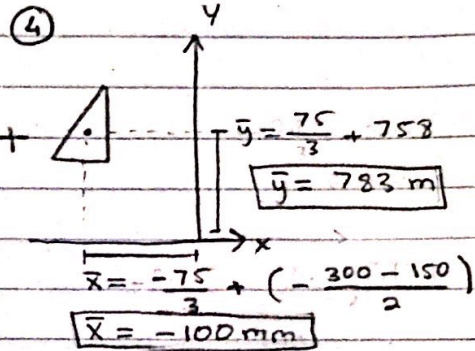 ④
y
+
ȳ = 75/3 + 758
ȳ = 783 m
x
x̄ = -75/3 + (- 300 - 150/2)
x̄ = -100 mm